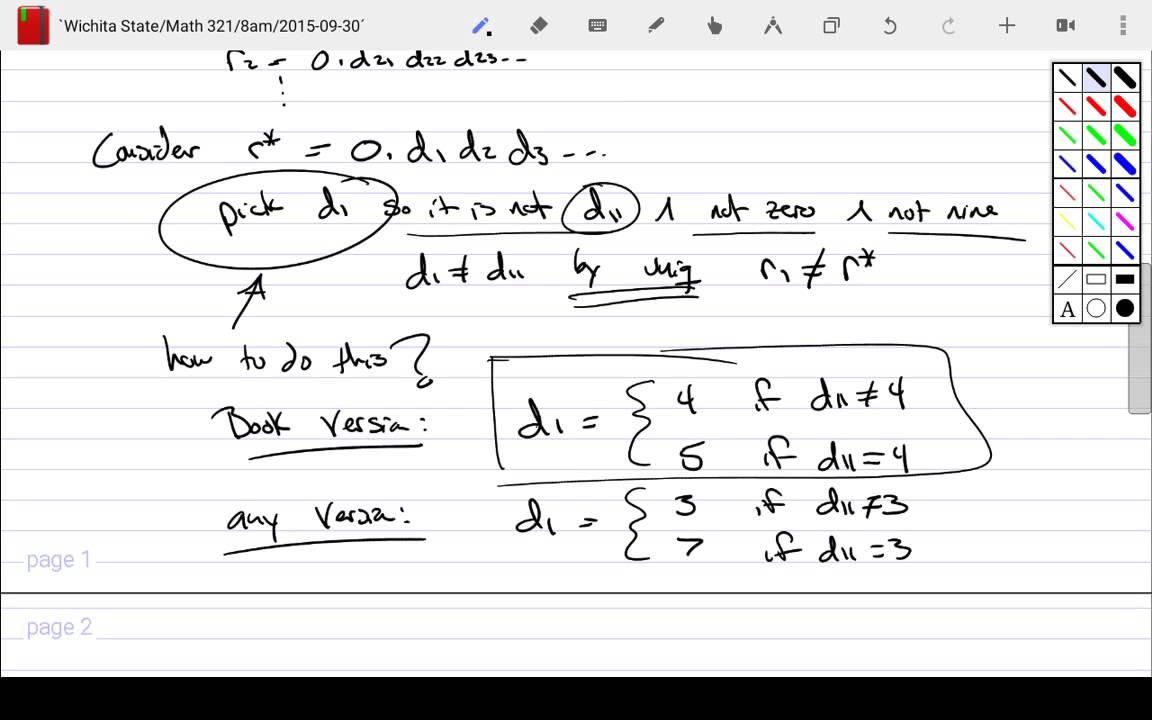 `Wichita State/Math 321/8am/2015-09-30´
r2 = 0.d21 d22 d23...
Consider r* = 0.d1 d2 d3 ...
pick d1 so it is not d11 ∧ not zero ∧ not nine
d1 ≠ d11 by uniq r1 ≠ r*
how to do this?
Book Version: d1 = { 4 if d11 ≠ 4
5 if d11 = 4
any Version: d1 = { 3 if d11 ≠ 3
7 if d11 = 3
page 1
page 2
A